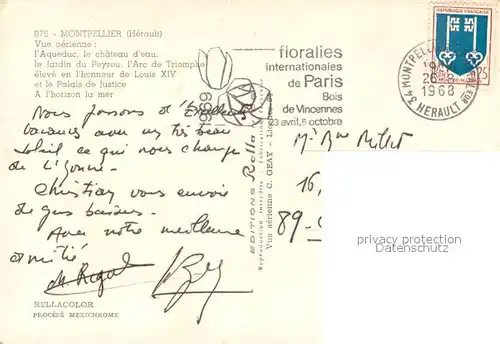 079 - MONTPELLIER (Hérault)
Vue aérienne :
l'Aqueduc, le château d'eau,
le Jardin du Peyrou, l'Arc de Triomphe
élevé en l'honneur de Louis XIV
et le Palais de Justice
A l'horizon la mer
1969
floralies
internationales
de Paris
Bois
de Vincennes
23 avril,5 octobre
REPUBLIQUE FRANÇAISE
0,25
34 MONTPELLIER
1968
HERAULT
Nous passons d'Excellentes
vacances avec un très beau
soleil ce qui nous change
de l'Yonne.
Christian vous envoie
de gros baisers.
Avec notre meilleure
amitié
EDITIONS Rella
Reproduction interdite - Fabrication
Vue aérienne C. GEAY -
16,
89-
RELLACOLOR
PROCÉDÉ MEXICHROME
privacy protection
Datenschutz